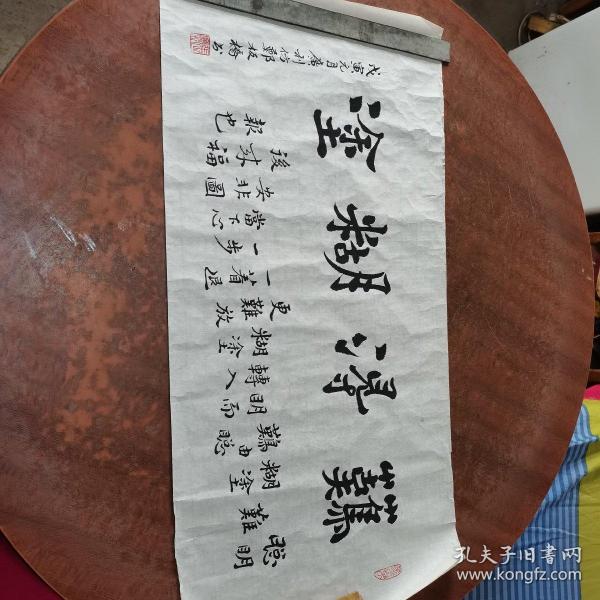 難得糊塗
聰明難
糊塗難
由聰明而
轉入糊塗
更難放
一著退
一步當下心
安非圖
後來福
報也
戊寅元月廣利仿鄭板橋書
孔夫子旧书网
www.kongfz.com